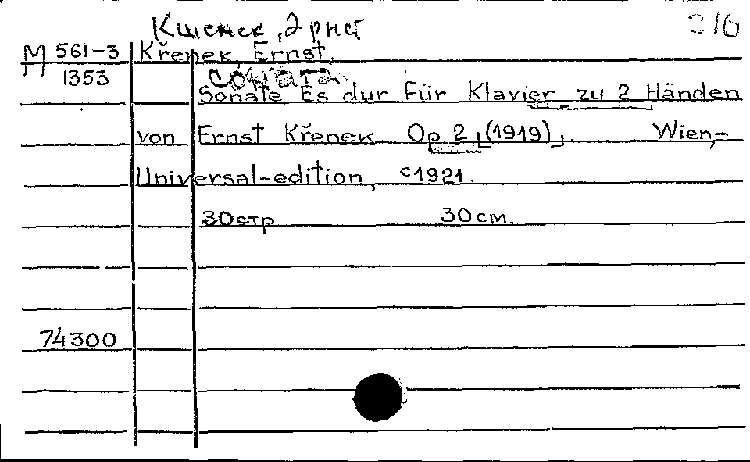 Кшенек, Эрнст
М 561-3 Křenek, Ernst,
1353 Соната
Sonate Es dur für Klavier zu 2 Händen
von Ernst Křenek Op 2 (1919) Wien,-
Universal-edition, c1921.
30стр 30см.
74300